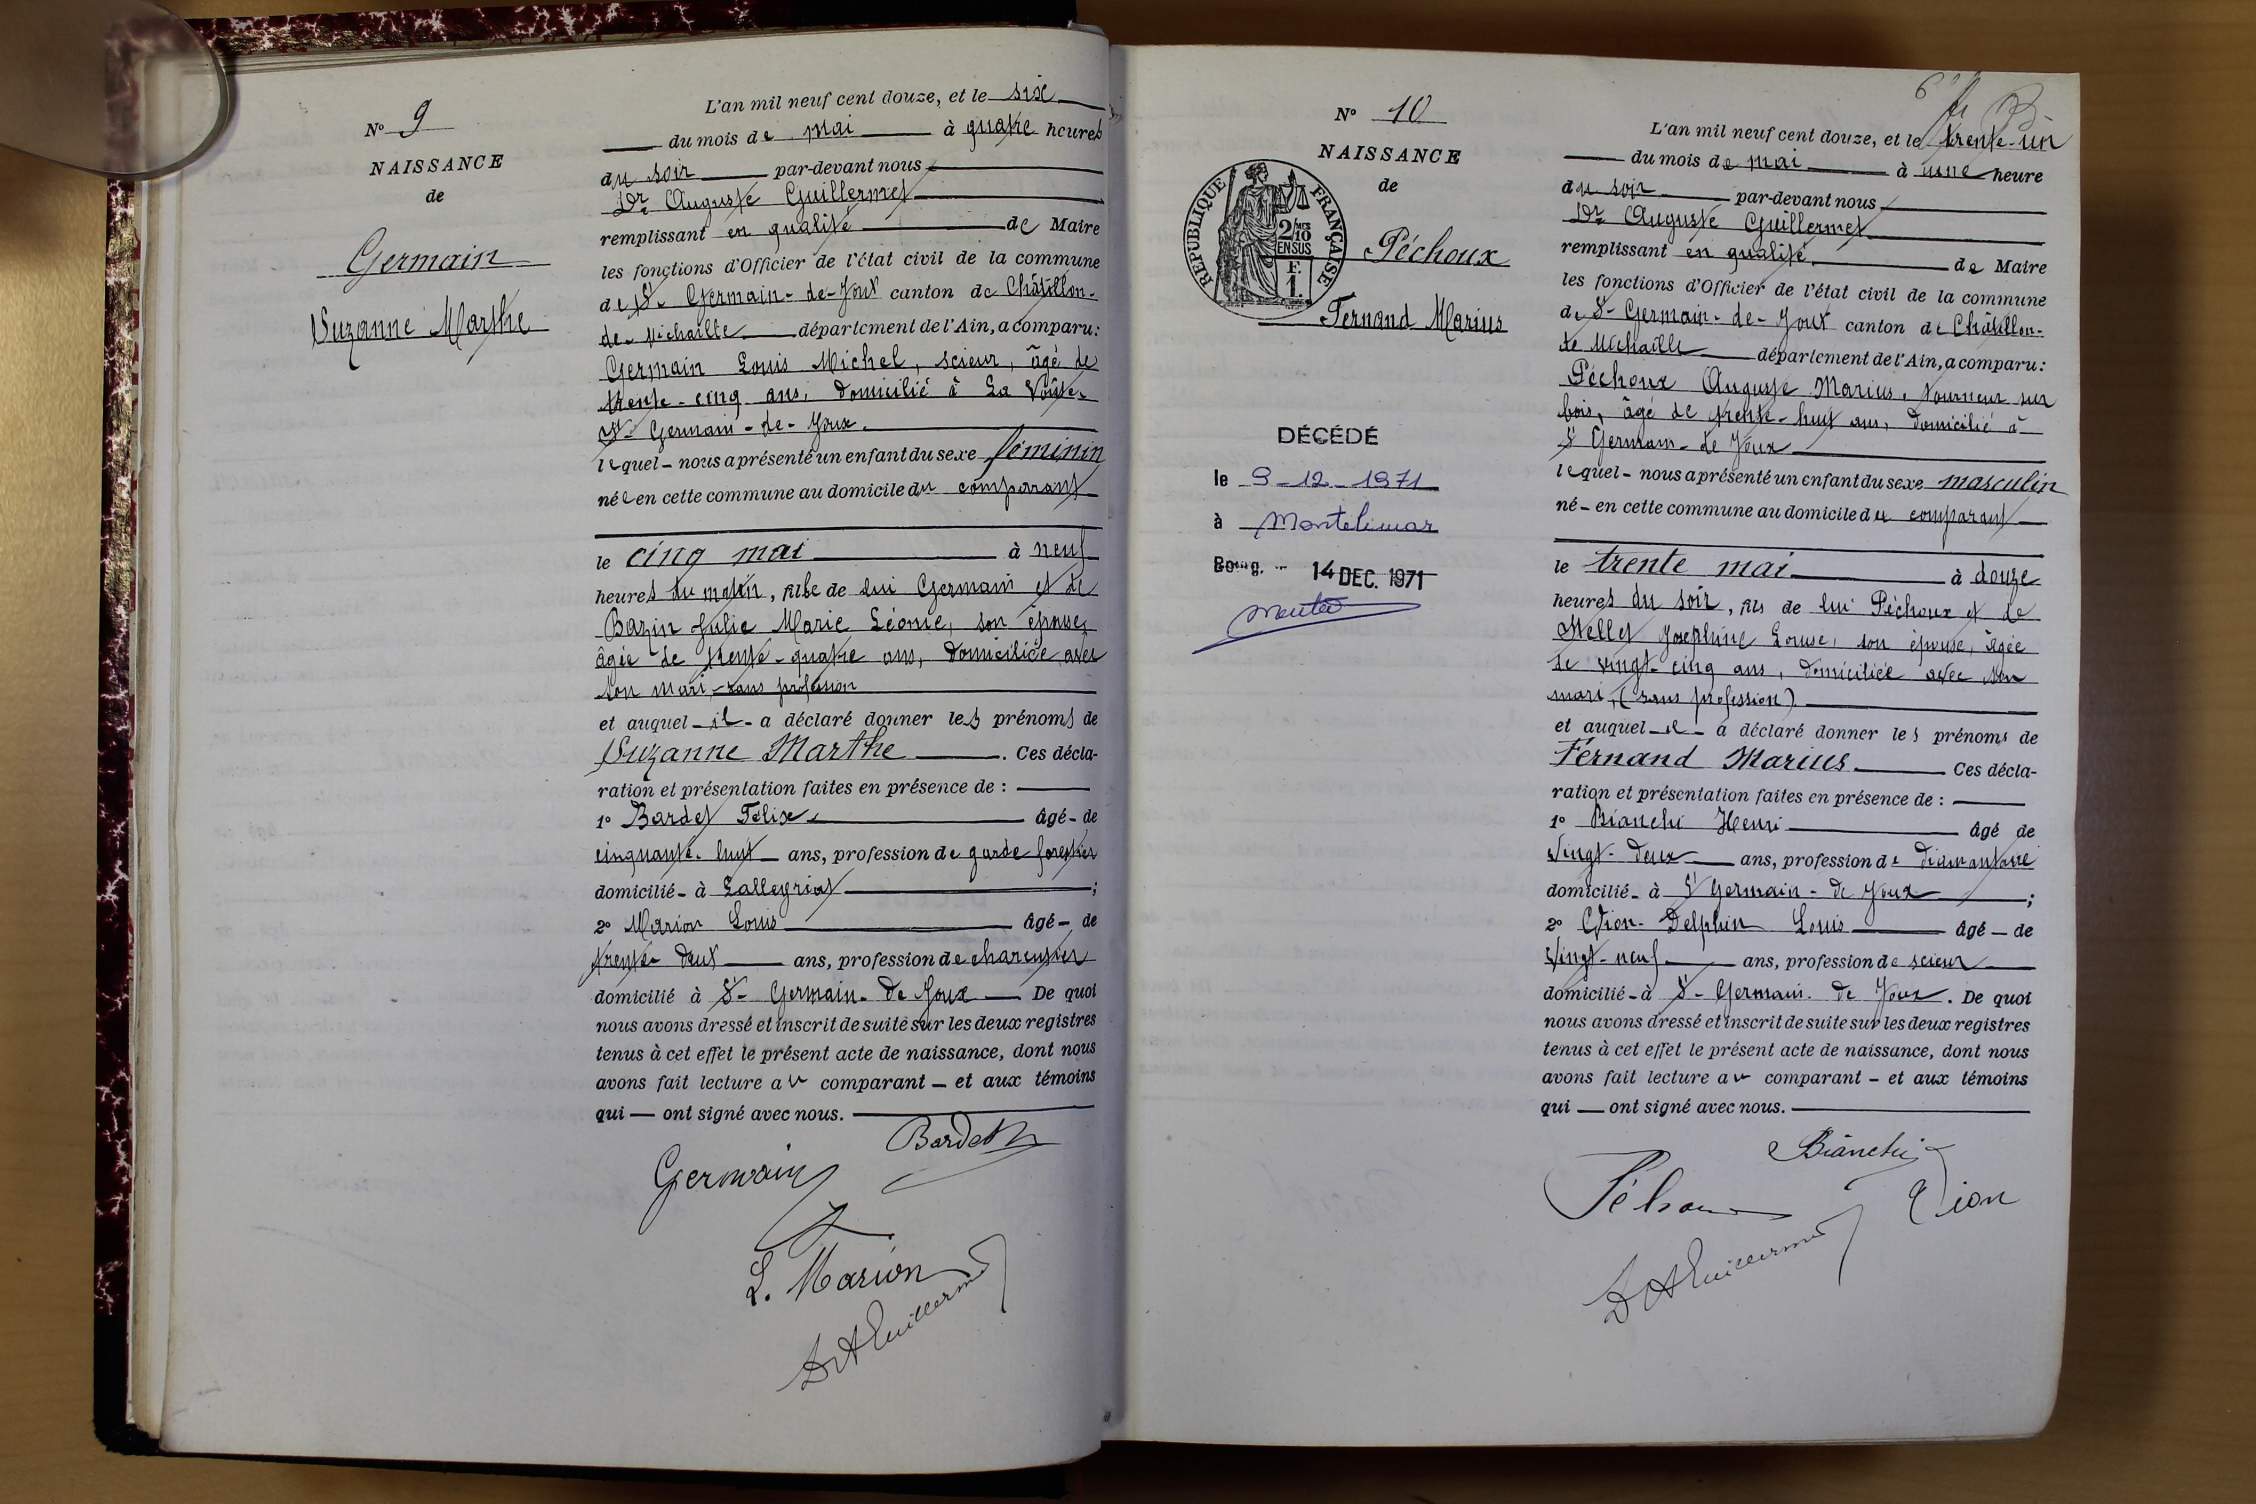 N° 9
NAISSANCE
de
Germain
Suzanne Marthe
L'an mil neuf cent douze, et le six
du mois de mai à quatre heures
du soir par-devant nous
Dr Auguste Guillermet
remplissant en qualité de Maire
les fonctions d'Officier de l'état civil de la commune
de St Germain-de-Joux canton de Châtillon-
de-Michaille département de l'Ain, a comparu:
Germain Louis Michel, scieur, âgé de
trente-cinq ans, domicilié à La Voûte,
St Germain-de-Joux.
lequel - nous a présenté un enfant du sexe féminin
née en cette commune au domicile du comparant
le cinq mai à neuf
heures du matin, fille de lui Germain et de
Bazin Julie Marie Léonie, son épouse,
âgée de trente-quatre ans, domiciliée avec
son mari, sans profession
et auquel - il - a déclaré donner les prénoms de
Suzanne Marthe. Ces décla-
ration et présentation faites en présence de :
1° Bardet Félix âgé - de
cinquante-huit ans, profession de garde forestier
domicilié - à Lalleyriat ;
2° Marion Louis âgé - de
trente-deux ans, profession de charcutier
domicilié à St-Germain-de Joux De quoi
nous avons dressé et inscrit de suite sur les deux registres
tenus à cet effet le présent acte de naissance, dont nous
avons fait lecture au comparant - et aux témoins
qui - ont signé avec nous.
Bardet
Germain
L. Marion
Dr A Guillermet
N° 10
NAISSANCE
de
RÉPUBLIQUE FRANÇAISE
2/10 EN SUS
F. 1.
Péchoux
Fernand Marius
DÉCÉDÉ
le 9-12-1971
à Montélimar
Bourg, le 14 DEC. 1971
L'an mil neuf cent douze, et le trente-un
du mois de mai à une heure
du soir par-devant nous
Dr Auguste Guillermet
remplissant en qualité de Maire
les fonctions d'Officier de l'état civil de la commune
de St Germain-de-Joux canton de Châtillon-
de Michaille département de l'Ain, a comparu:
Péchoux Auguste Marius, tourneur sur
bois, âgé de trente-huit ans, domicilié à
St Germain-de Joux
lequel - nous a présenté un enfant du sexe masculin
né - en cette commune au domicile du comparant
le trente mai à douze
heures du soir, fils de lui Péchoux et de
Joséphine Louise, son épouse, âgée
de vingt-cinq ans, domiciliée avec son
mari, (sans profession)
et auquel - il - a déclaré donner les prénoms de
Fernand Marius Ces décla-
ration et présentation faites en présence de :
1° Bianchi Henri âgé de
vingt-deux ans, profession de diamantaire
domicilié - à St Germain-de Joux ;
2° Dion Delphin Louis âgé - de
vingt-neuf ans, profession de scieur
domicilié - à St-Germain-de Joux. De quoi
nous avons dressé et inscrit de suite sur les deux registres
tenus à cet effet le présent acte de naissance, dont nous
avons fait lecture au comparant - et aux témoins
qui - ont signé avec nous.
Bianchi
Péchoux
Dion
Dr A Guillermet